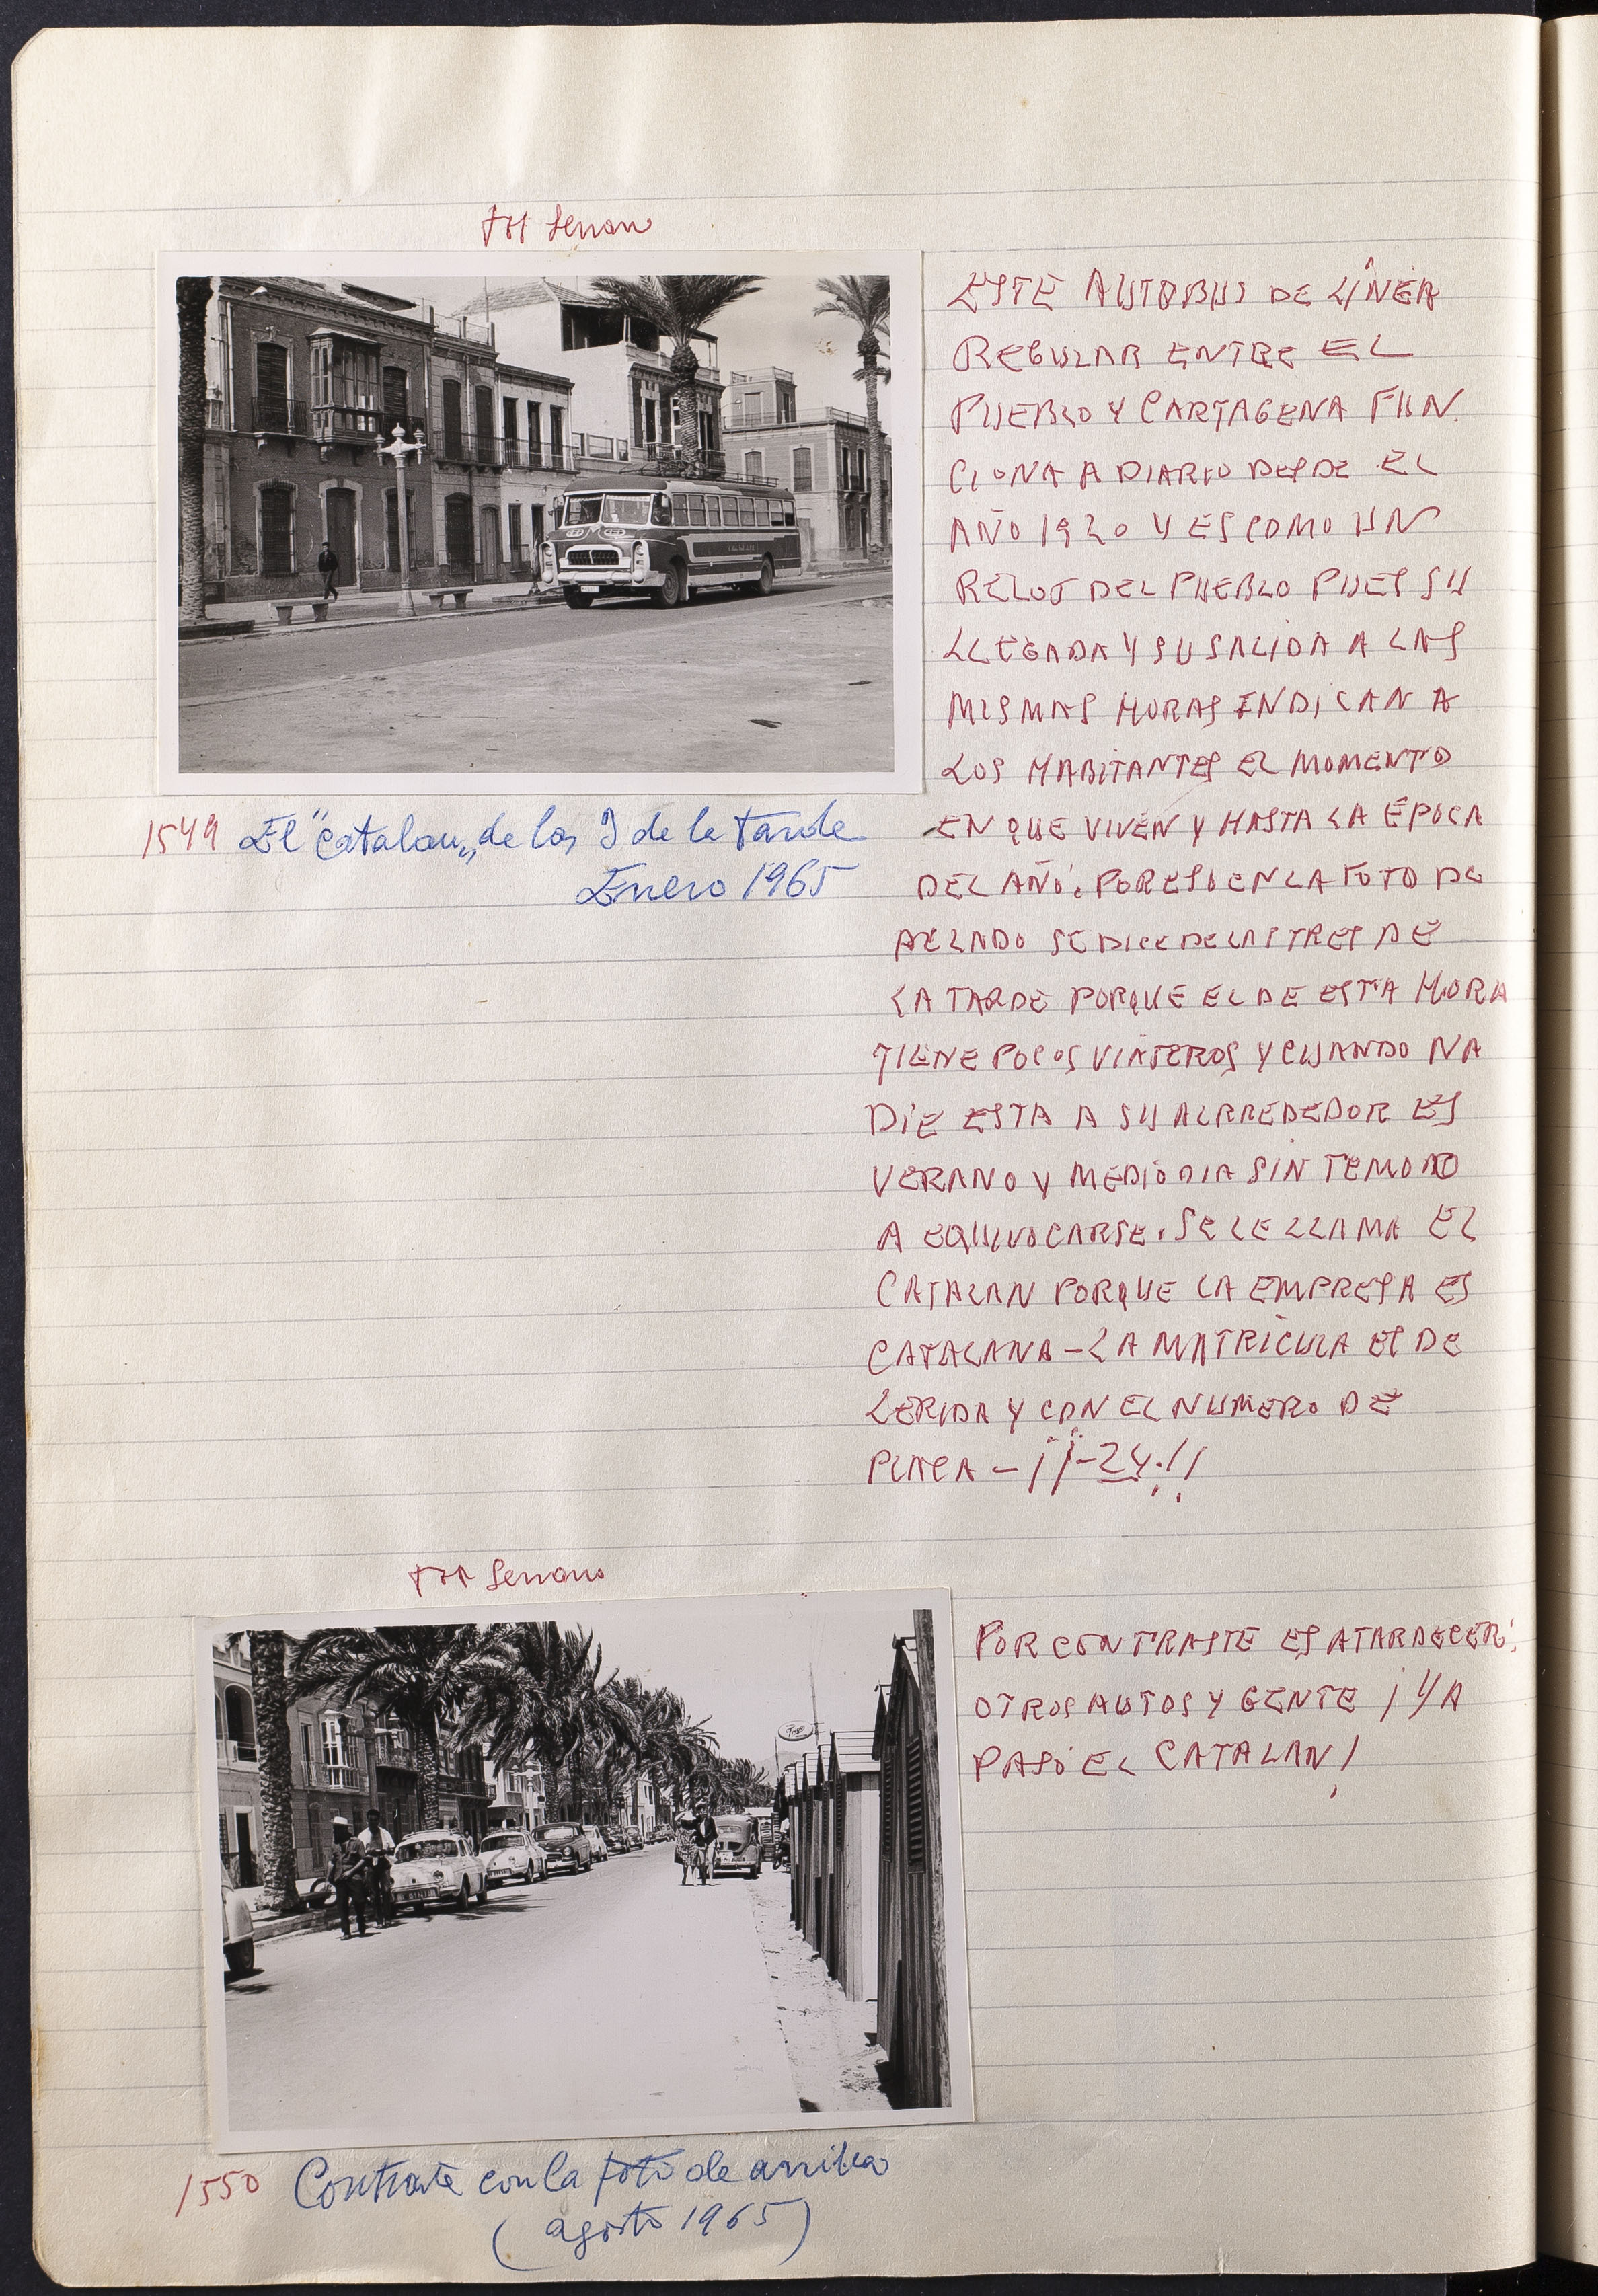 Fot Serrano
ESTE AUTOBUS DE LÍNEA
REGULAR ENTRE EL
PUEBLO Y CARTAGENA FUN.
CIONA A DIARIO DESDE EL
AÑO 1920 Y ES COMO UN
RELOJ DEL PUEBLO PUES SU
LLEGADA Y SU SALIDA A LAS
MISMAS HORAS INDICAN A
LOS HABITANTES EL MOMENTO
EN QUE VIVEN Y HASTA LA ÉPOCA
DEL AÑO. POR ESO EN LA FOTO DE
AL LADO SE DICE DE LAS TRES DE
LA TARDE PORQUE EL DE ESTA HORA
TIENE POCOS VIAJEROS Y CUANDO NA
DIE ESTA A SU ALRREDEDOR ES
VERANO Y MEDIO DIA SIN TEMOR
A EQUIVOCARSE. SE LE LLAMA EL
CATALAN PORQUE LA EMPRESA ES
CATALANA - LA MATRÍCULA ES DE
LERIDA Y CON EL NUMERO DE
PLACA - ¡¡-24.!!
1549 El "catalan" de las 3 de la tarde
Enero 1965
Fot Serrano
POR CONTRASTE ES ATARDECER.
OTROS AUTOS Y GENTE ¡YA
PASÓ EL CATALAN!
1550 Contraste con la foto de arriba
(agosto 1965)